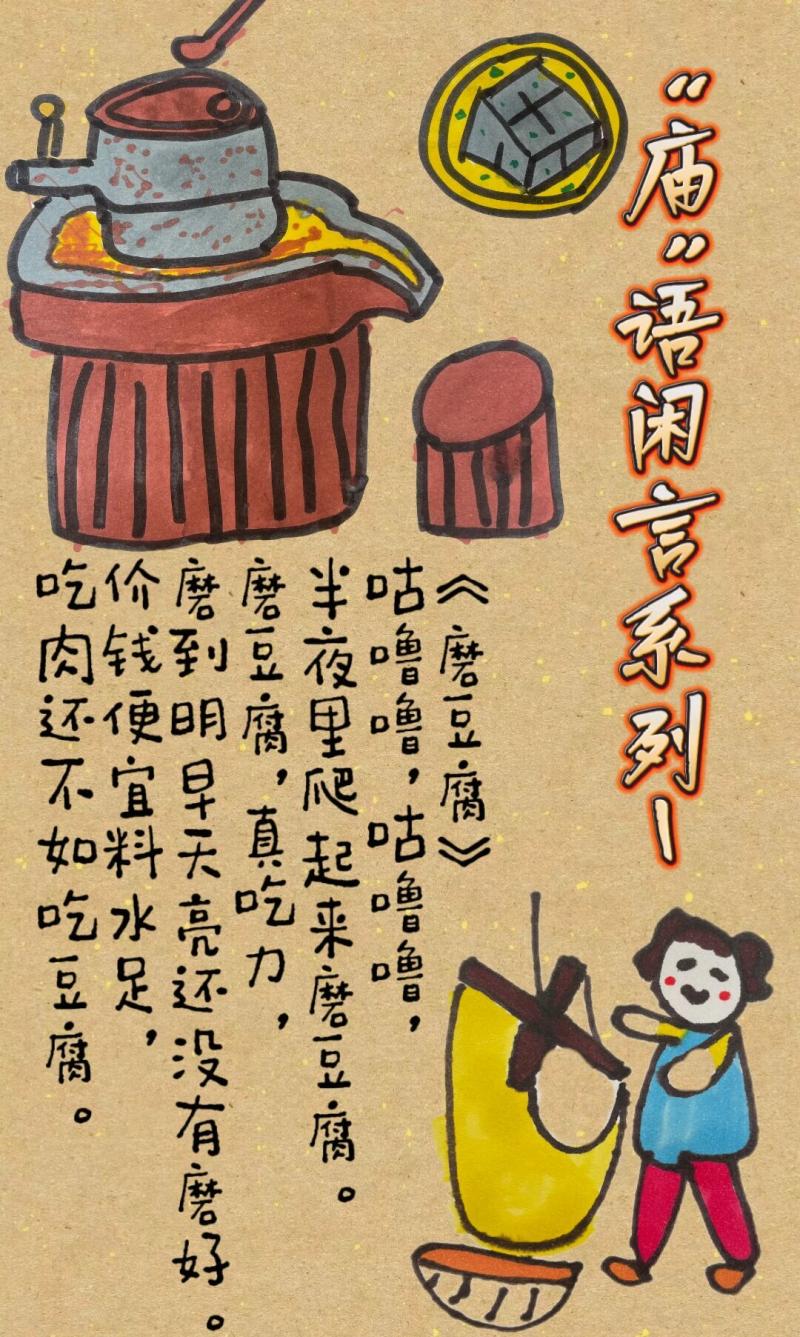 “庙”语闲言系列一
《磨豆腐》
咕噜噜，咕噜噜，
半夜里爬起来磨豆腐。
磨豆腐，真吃力，
磨到明早天亮还没有磨好。
价钱便宜料水足，
吃肉还不如吃豆腐。